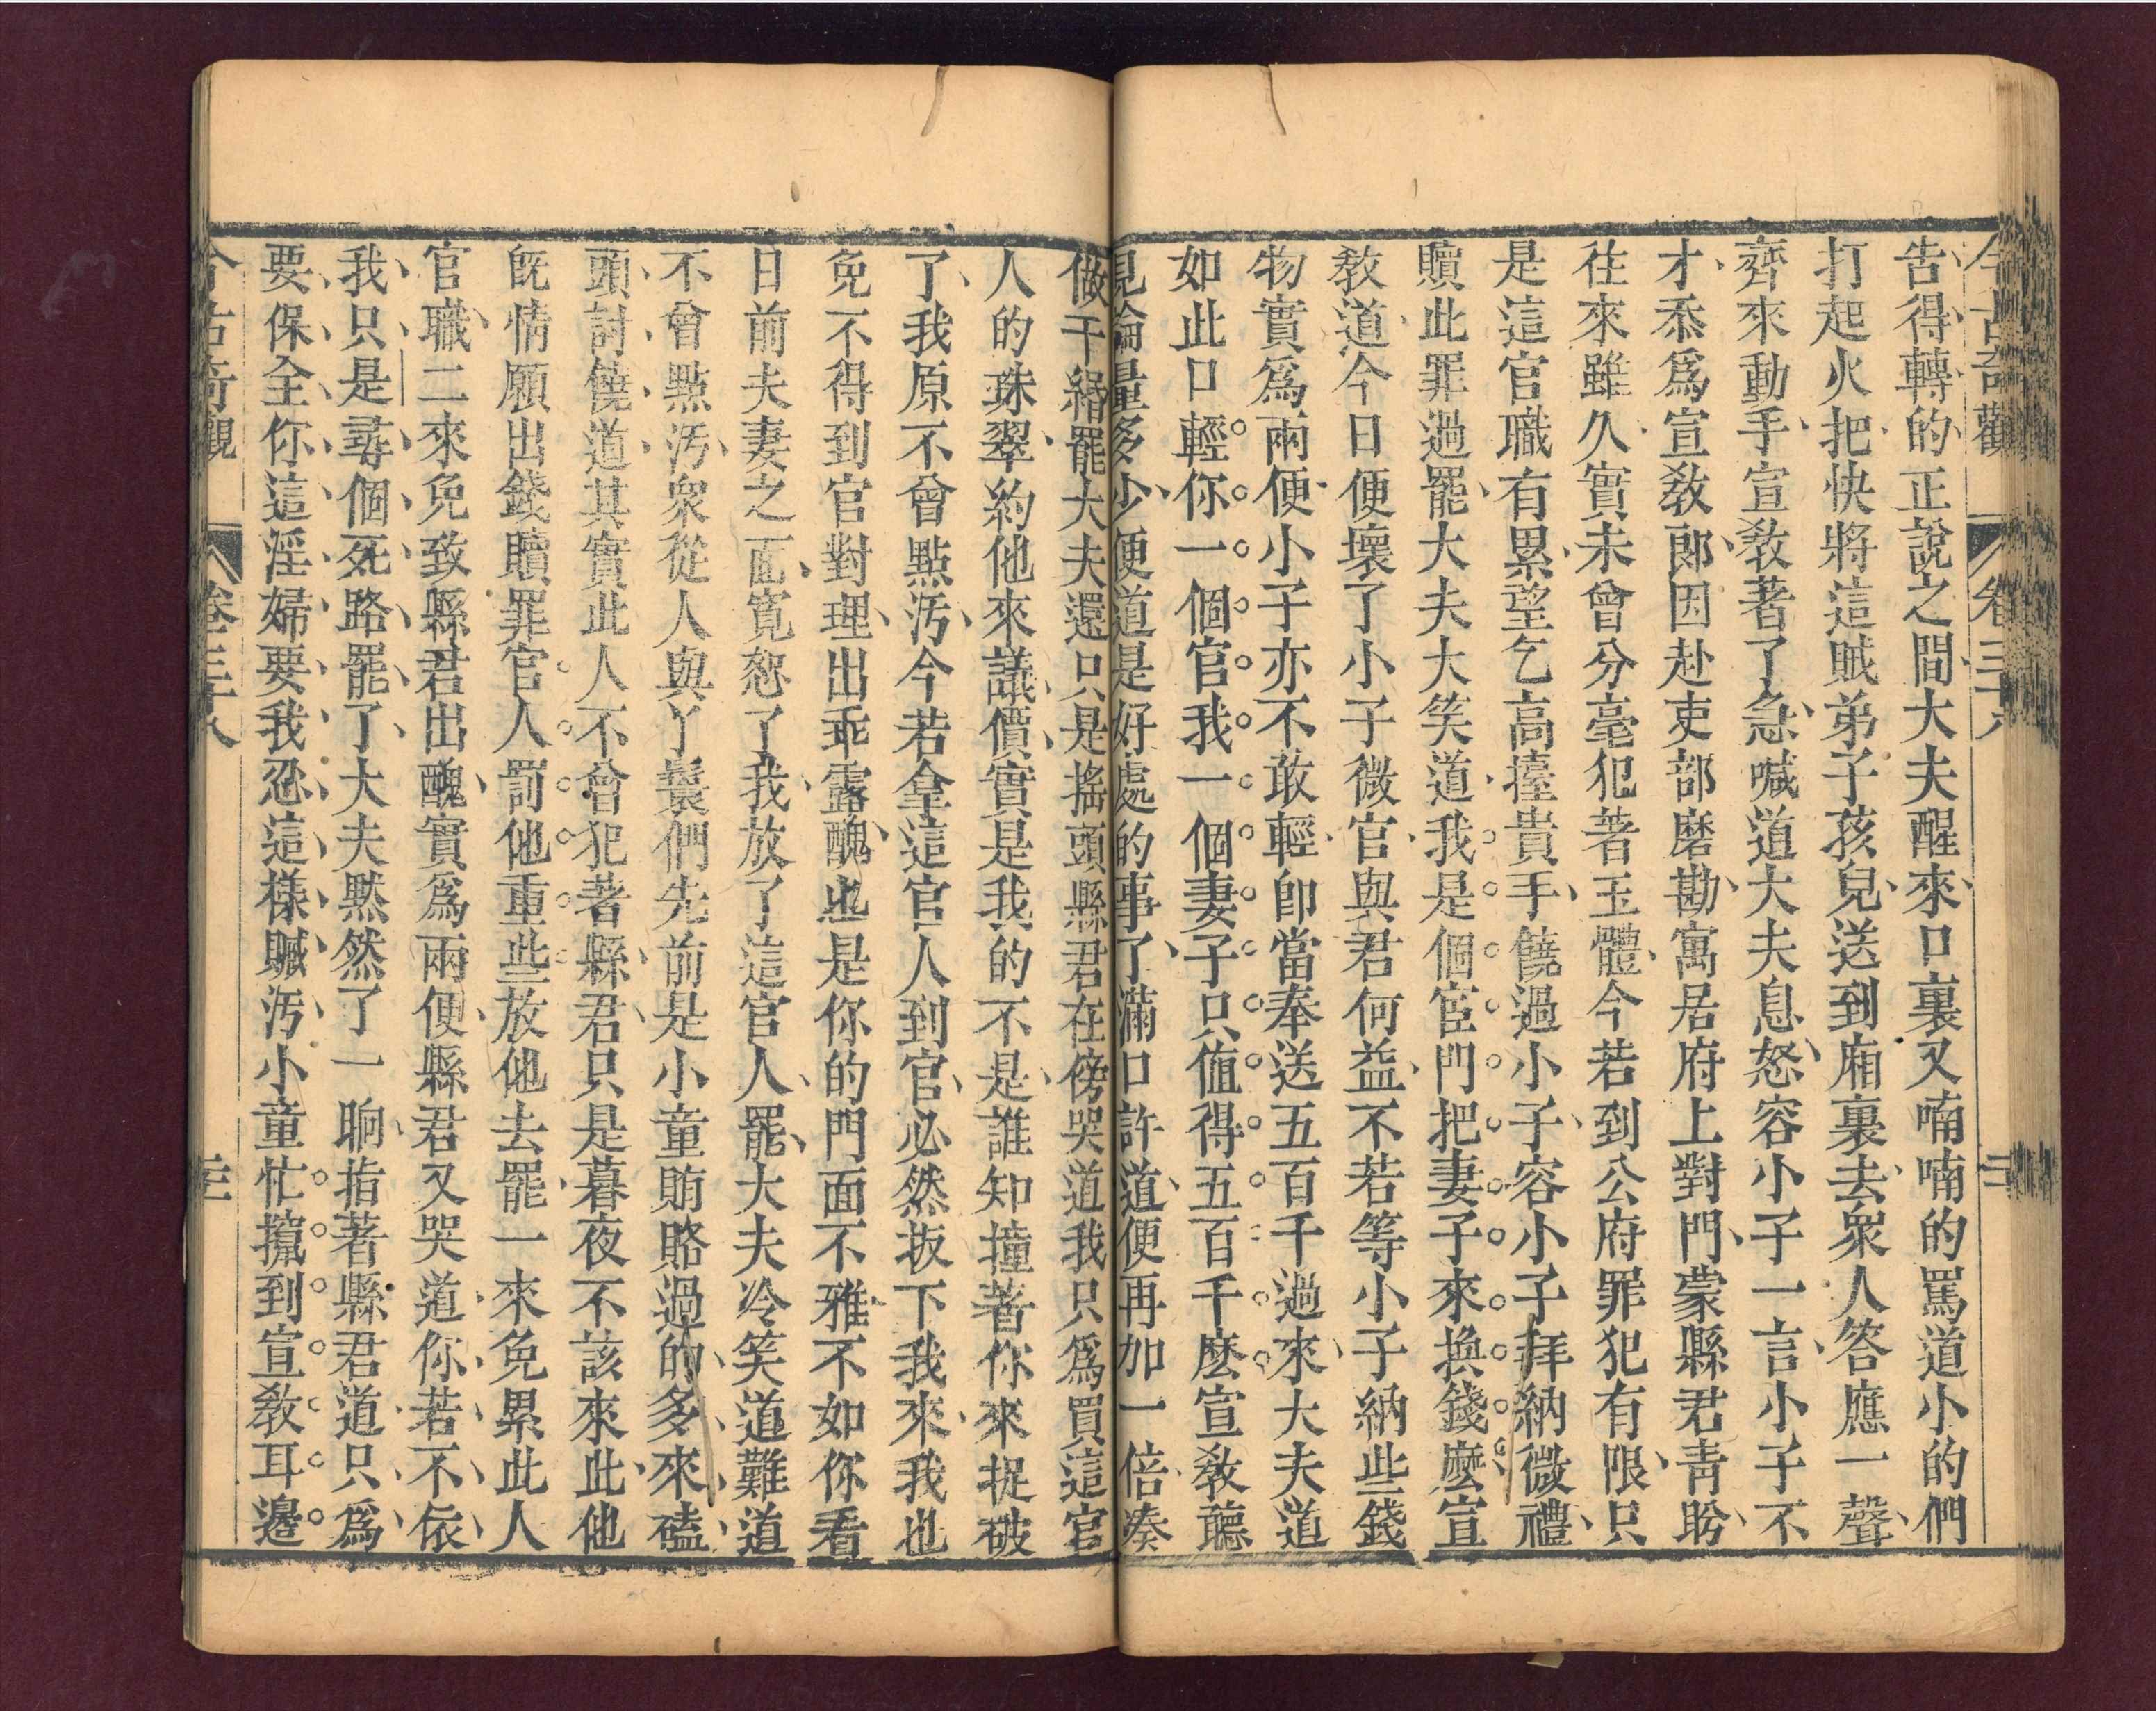 今古奇觀 卷三十八
告得轉的正說之間大夫醒來口裏又喃喃的罵道小的們
打起火把快將這賊弟子孩兒送到廂裏去衆人答應一聲
齊來動手宣敎著了急喊道大夫息怒容小子一言小子不
才忝爲宣敎郞因赴吏部磨勘寓居府上對門蒙縣君靑盼
往來雖久實未曾分毫犯著玉體今若到公府罪犯有限只
是這官職有累望乞高擡貴手饒過小子容小子拜納微禮
贖此罪過罷大夫大笑道我是個宦門把妻子來換錢麽宣
敎道今日便壞了小子微官與君何益不若等小子納些錢
物實爲兩便小子亦不敢輕卽當奉送五百千過來大夫道
如此口輕你一個官我一個妻子只值得五百千麽宣敎聽
見論量多少便道是好處的事了滿口許道便再加一倍湊
做千緡罷大夫還只是搖頭縣君在傍哭道我只爲買這官
人的珠翠約他來議價實是我的不是誰知撞著你來捉破
了我原不曾點汚今若拿這官人到官必然扳下我來我也
免不得到官對理出乖露醜也是你的門面不雅不如你看
日前夫妻之面寬恕了我放了這官人罷大夫冷笑道難道
不曾點汚衆從人與丫鬟們先前是小童賄賂過的多來磕
頭討饒道其實此人不曾犯著縣君只是暮夜不該來此他
旣情願出錢贖罪官人罰他重些放他去罷一來免累此人
官職二來免致縣君出醜實爲兩便縣君又哭道你若不依
我只是尋個死路罷了大夫默然了一晌指著縣君道只爲
要保全你這淫婦要我忍這樣贓汚小童忙攛到宣敎耳邊
今古奇觀 卷三十八